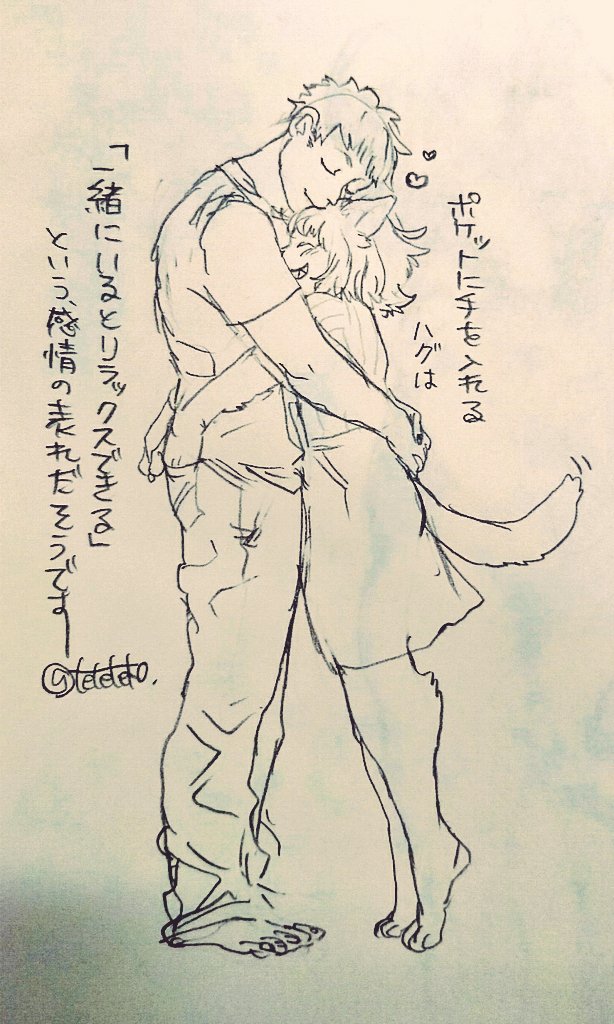 ポケットに手を入れる
ハグは
「一緒にいるとリラックスできる」
という、感情の表れだそうですー
@tetetetO.